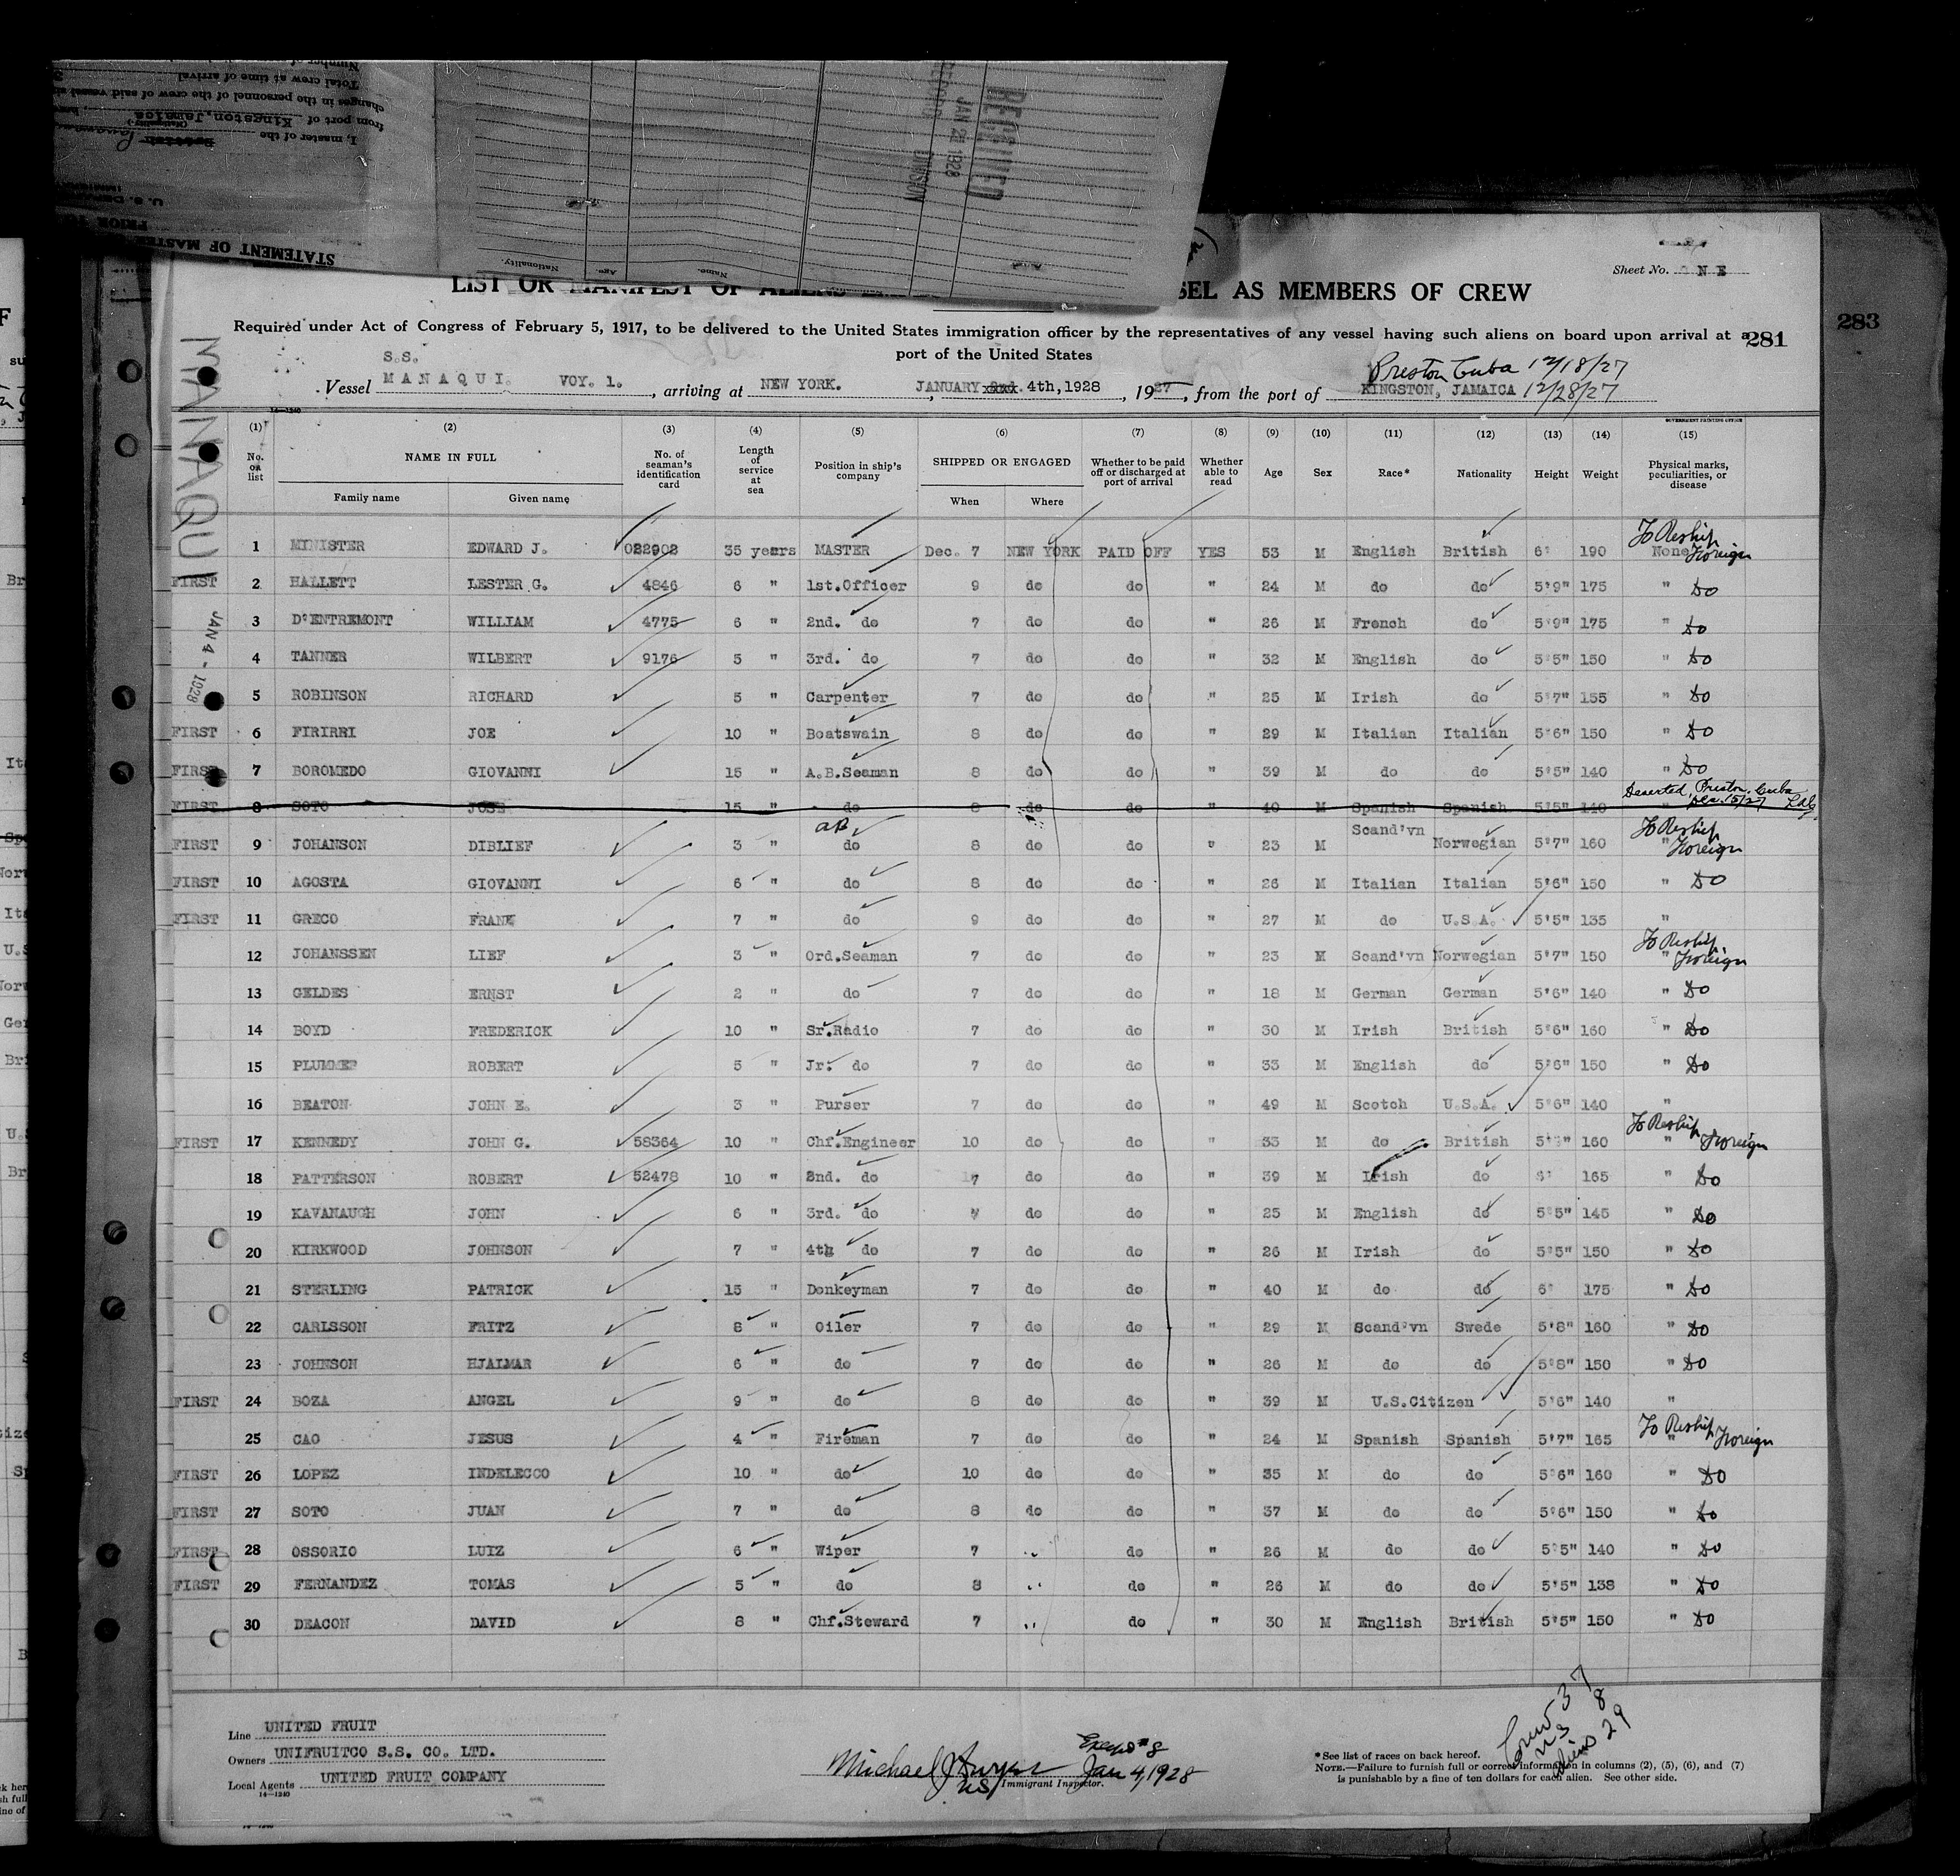 STATEMENT OF MASTER
PRIOR
U. S. Depar
I, master of the British
(Nationality)
from port of Kingston, Jamaica
changes in the personnel of the crew of said vessel
Total crew at time of arrival
Number of
RECEIVED
JAN 1928
RECORDS DIVISION
Nationality. Age. Name.
Sheet No. ONE
LIST OR MANIFEST OF ALIENS SEL AS MEMBERS OF CREW
Required under Act of Congress of February 5, 1917, to be delivered to the United States immigration officer by the representatives of any vessel having such aliens on board upon arrival at a
port of the United States
281
283
Preston Cuba 12/18/27
Vessel S.S. MANAQUI. VOY. 1. , arriving at NEW YORK. JANUARY 4th,1928 , 1927 , from the port of KINGSTON, JAMAICA 12/28/27
MANAQUI
JAN 4 - 1928
14—1240
GOVERNMENT PRINTING OFFICE
(1) (2) (3) (4) (5) (6) (7) (8) (9) (10) (11) (12) (13) (14) (15)
No. on list NAME IN FULL No. of seaman's identification card Length of service at sea Position in ship's company SHIPPED OR ENGAGED Whether to be paid off or discharged at port of arrival Whether able to read Age Sex Race* Nationality Height Weight Physical marks, peculiarities, or disease
Family name Given name When Where
1 MINISTER EDWARD J. 022902 35 years MASTER Dec. 7 NEW YORK PAID OFF YES 53 M English British 6' 190 None To Reship Foreign
FIRST 2 HALLETT LESTER G. 4846 6 " 1st.Officer 9 do do " 24 M do do 5'9" 175 " Do
3 D'ENTREMONT WILLIAM 4775 6 " 2nd. do 7 do do " 26 M French do 5'9" 175 " Do
4 TANNER WILBERT 9176 5 " 3rd. do 7 do do " 32 M English do 5'5" 150 " Do
5 ROBINSON RICHARD 5 " Carpenter 7 do do " 25 M Irish do 5'7" 155 " Do
FIRST 6 FIRIRRI JOE 10 " Boatswain 8 do do " 29 M Italian Italian 5'6" 150 " Do
FIRST 7 BOROMEDO GIOVANNI 15 " A.B.Seaman 8 do do " 39 M do do 5'5" 140 " Do
FIRST 8 SOTO JOSE 15 " do 8 do do " 40 M Spanish Spanish 5'5" 140 " Deserted, Preston, Cuba Dec. 15/27
FIRST 9 JOHANSON DIBLIEF 3 " AB do 8 do do " 23 M Scand'vn Norwegian 5'7" 160 " To Reship Foreign
FIRST 10 AGOSTA GIOVANNI 6 " do 8 do do " 26 M Italian Italian 5'6" 150 " Do
FIRST 11 GRECO FRANK 7 " do 9 do do " 27 M do U.S.A. 5'5" 135 "
12 JOHANSSEN LIEF 3 " Ord.Seaman 7 do do " 23 M Scand'vn Norwegian 5'7" 150 " To Reship. Foreign
13 GELDES ERNST 2 " do 7 do do " 18 M German German 5'6" 140 " Do
14 BOYD FREDERICK 10 " Sr.Radio 7 do do " 30 M Irish British 5'6" 160 " Do
15 PLUMMER ROBERT 5 " Jr. do 7 do do " 33 M English do 5'6" 150 " Do
16 BEATON JOHN E. 3 " Purser 7 do do " 49 M Scotch U.S.A. 5'6" 140 "
FIRST 17 KENNEDY JOHN G. 58364 10 " Chf.Engineer 10 do do " 33 M do British 160 " To Reship Foreign
18 PATTERSON ROBERT 52478 10 " 2nd. do 7 do do " 39 M Irish do 6' 165 " Do
19 KAVANAUGH JOHN 6 " 3rd. do 7 do do " 25 M English do 5'5" 145 " Do
20 KIRKWOOD JOHNSON 7 " 4th do 7 do do " 26 M Irish do 5'5" 150 " Do
21 STERLING PATRICK 15 " Donkeyman 7 do do " 40 M do do 6' 175 " Do
22 CARLSSON FRITZ 8 " Oiler 7 do do " 29 M Scand'vn Swede 5'8" 160 " Do
23 JOHNSON HJALMAR 6 " do 7 do do " 26 M do do 5'8" 150 " Do
FIRST 24 BOZA ANGEL 9 " do 8 do do " 39 M U.S.Citizen 5'6" 140 "
25 CAO JESUS 4 " Fireman 7 do do " 24 M Spanish Spanish 5'7" 165 " To Reship Foreign
FIRST 26 LOPEZ INDELECCO 10 " do 10 do do " 35 M do do 5'6" 160 " Do
FIRST 27 SOTO JUAN 7 " do 8 do do " 37 M do do 5'6" 150 " Do
FIRST 28 OSSORIO LUIZ 6 " Wiper 7 " do " 26 M do do 5'5" 140 " Do
FIRST 29 FERNANDEZ TOMAS 5 " do 8 " do " 26 M do do 5'5" 138 " Do
30 DEACON DAVID 8 " Chf.Steward 7 " do " 30 M English British 5'5" 150 " Do
Line UNITED FRUIT
Owners UNIFRUITCO S.S. CO. LTD.
Local Agents UNITED FRUIT COMPANY
14—1240
Michael J. US Jan 4, 1928
Immigrant Inspector.
Crew 37
US 8
aliens 29
*See list of races on back hereof.
NOTE.—Failure to furnish full or correct information in columns (2), (5), (6), and (7)
is punishable by a fine of ten dollars for each alien. See other side.